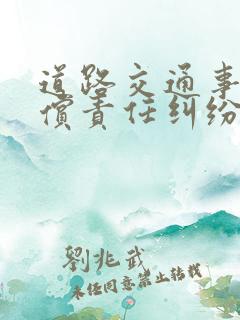 道路交通事
偿责任纠纷
劉兆武
未经同意禁止转载